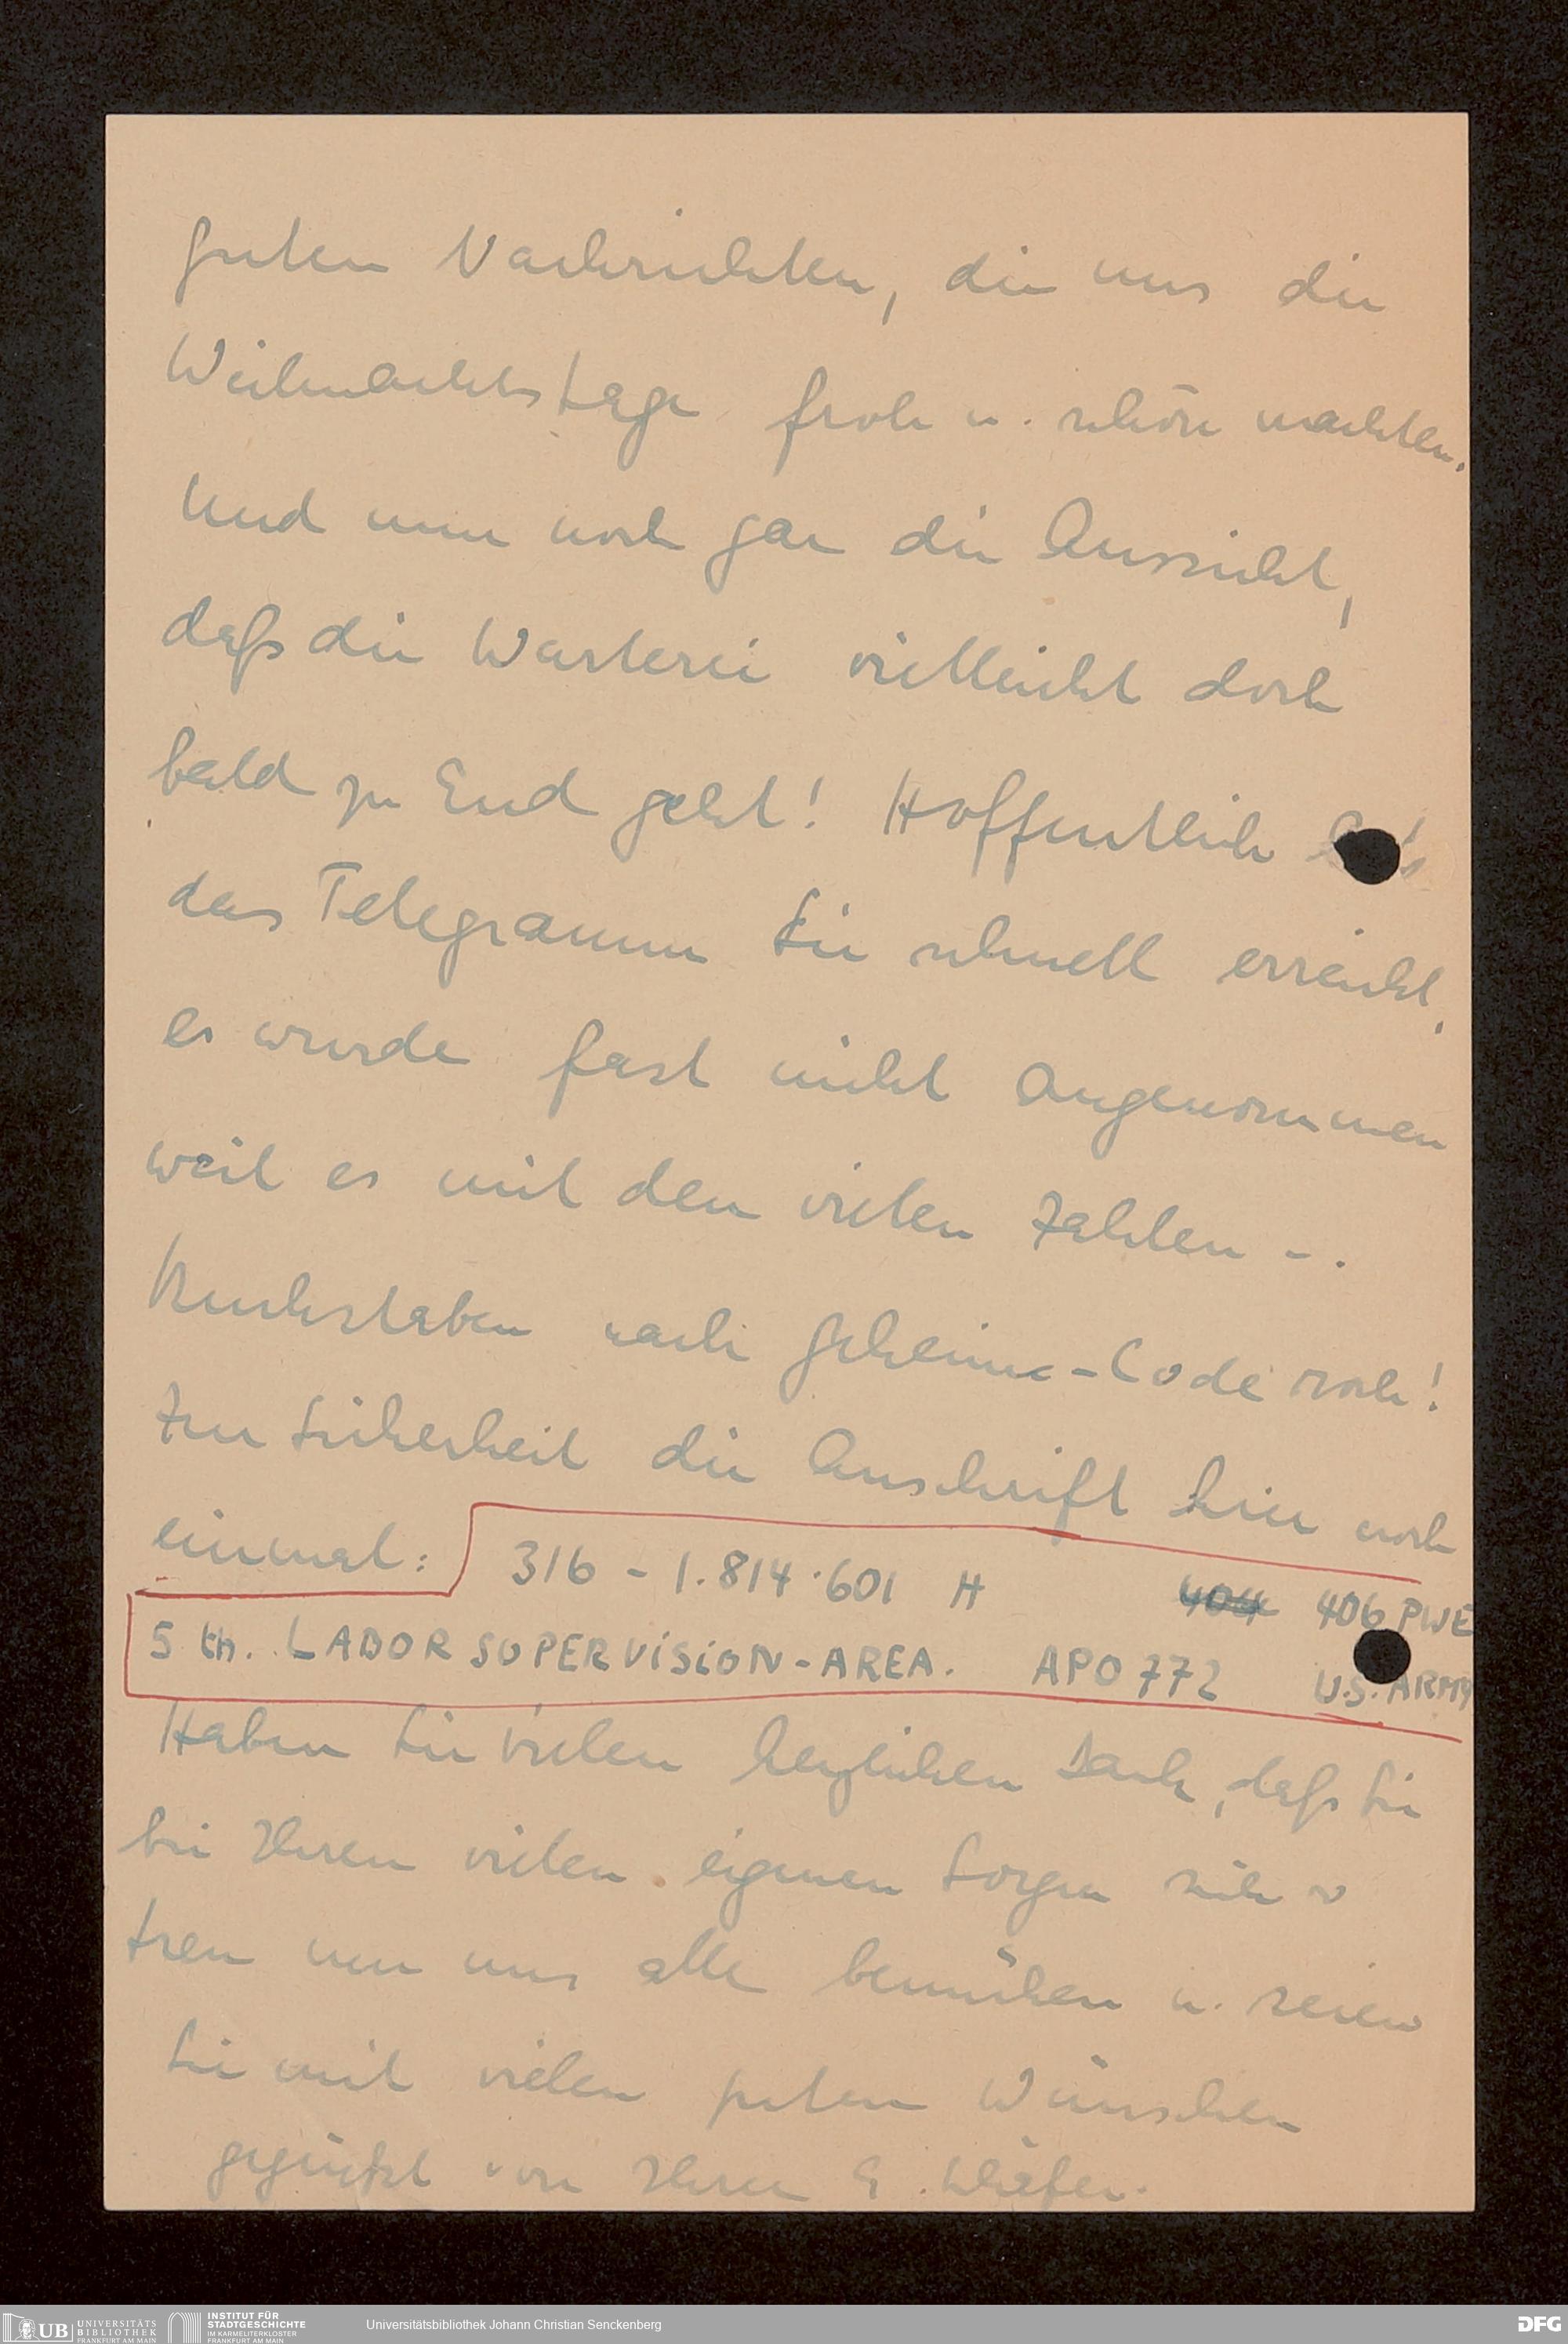 guten Nachrichten, die uns die
Weihnachtstage froh u. schön machten.
Und nun noch gar die Aussicht,
daß die Warterei vielleicht doch
bald zu End geht! Hoffentlich
das Telegramm Sie schnell erreicht,
es wurde fast nicht angenommen
weil es mit den vielen Zahlen -.
Buchstaben nach Geheim-Code roch!
Zur Sicherheit die Anschrift hier noch
einmal: 316 - 1.814.601 H 404 406 PWE
5 th. LABOR SUPERVISION-AREA. APO 772 U.S. ARMY
Haben Sie vielen herzlichen Dank, daß Sie
bei Ihren vielen eigenen Sorgen sich so
treu um uns alle bemühen u. seien
Sie mit vielen guten Wünschen
gegrüßt von Ihrer
UB UNIVERSITÄTS
BIBLIOTHEK
FRANKFURT AM MAIN
INSTITUT FÜR
STADTGESCHICHTE
IM KARMELITERKLOSTER
FRANKFURT AM MAIN
Universitätsbibliothek Johann Christian Senckenberg
DFG